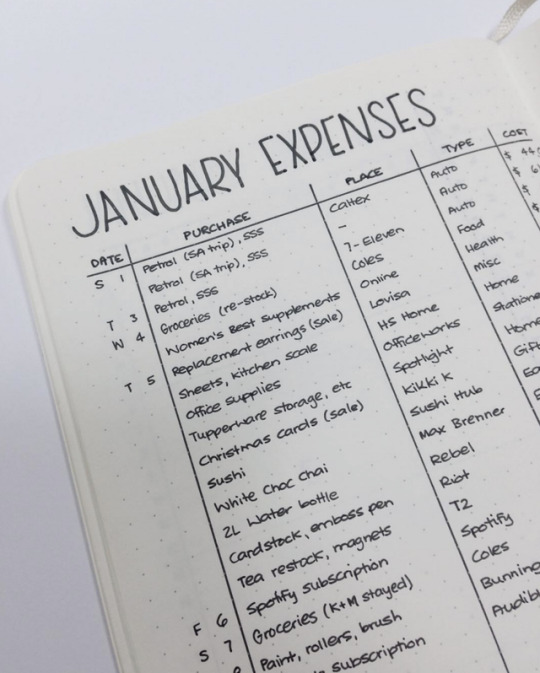 JANUARY EXPENSES
DATE PURCHASE PLACE TYPE COST
S 1 Petrol (SA trip), SSS Caltex Auto $ 44
Petrol (SA trip), SSS – Auto $
T 3 Petrol, SSS 7-Eleven Auto $
W 4 Groceries (re-stock) Coles Food $
Women's Best supplements Online Health
T 5 Replacement earrings (sale) Lovisa Misc
Sheets, kitchen scale HS Home Home
Office supplies Officeworks Statione
Tupperware storage, etc Spotlight Home
Christmas cards (sale) Kikki K Gift
Sushi Sushi Hub Ea
White choc chai Max Brenner E
2L water bottle Rebel
Cardstock, emboss pen Riot
Tea restock, magnets T2
F 6 Spotify subscription Spotify
S 7 Groceries (K+M stayed) Coles
Paint, rollers, brush Bunning
subscription Audibl